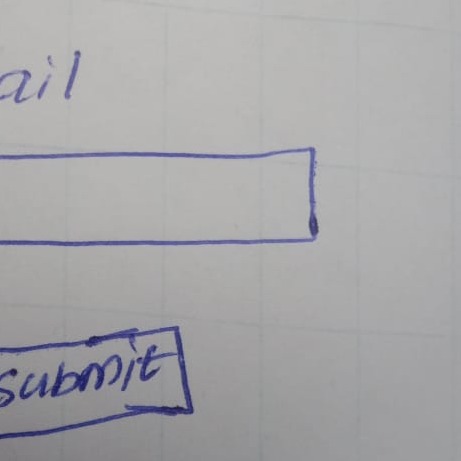 ail
submit